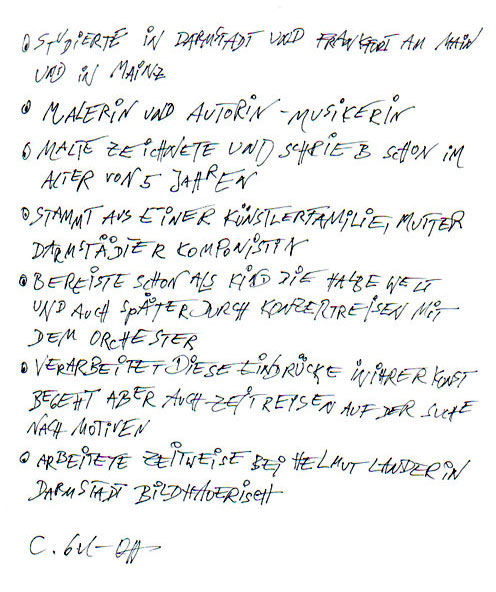 • STUDIERTE IN DARMSTADT UND FRANKFURT AM MAIN
UND IN MAINZ
• MALERIN UND AUTORIN - MUSIKERIN
• MALTE ZEICHNETE UND SCHRIEB SCHON IM
ALTER VON 5 JAHREN
• STAMMT AUS EINER KÜNSTLERFAMILIE, MUTTER
DARMSTÄDTER KOMPONISTIN
• BEREISTE SCHON ALS KIND DIE HALBE WELT
UND AUCH SPÄTER DURCH KONZERTREISEN MIT
DEM ORCHESTER
• VERARBEITET DIESE EINDRÜCKE IN IHRER KUNST
BEGEHT ABER AUCH ZEITREISEN AUF DER SUCHE
NACH MOTIVEN
• ARBEITETE ZEITWEISE BEI HELMUT LANDER IN
DARMSTADT BILDHAUERISCH
C.